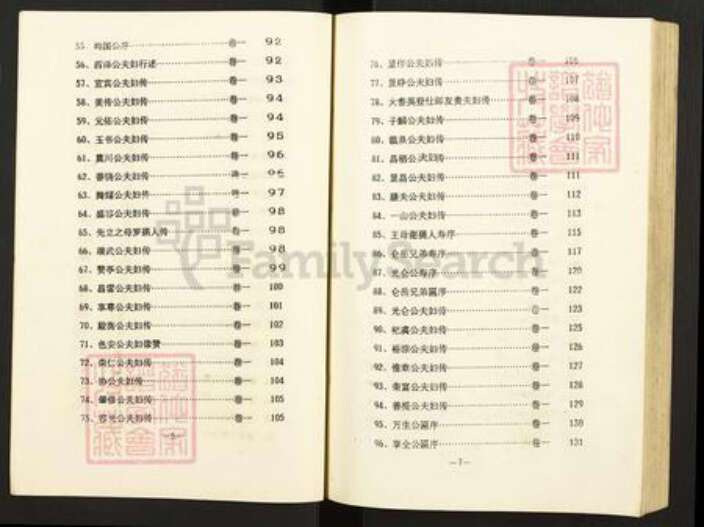 55 尚国公序 卷一 92
56、西泽公夫妇行述 卷一 92
57、宜宾公夫妇传 卷一 93
58、美传公夫妇传 卷一 94
59、元佑公夫妇传 卷一 94
60、玉书公夫妇传 卷一 95
61、冀川公夫妇传 卷一 96
62、善饶公夫妇传 96
63、公夫妇传 97
64、盛公夫妇传 98
65、先立之母罗孺人传 98
66、瑞武公夫妇传 卷一 98
67、赞亭公夫妇传 卷一 99
68、昌公夫妇传 卷一 100
69、享尊公夫妇传 卷一 101
70、殿衡公夫妇传 卷一 102
71、色安公夫妇像赞 卷一 103
72、荣仁公夫妇传 卷一 104
73、协公夫妇传 卷一 104
74、公夫妇传 卷一 105
75、公夫妇传 卷一 105
76、显作公夫妇传 卷一 106
77、显峥公夫妇传 卷一 107
78、大耆英登仕郎友贵夫妇传 卷一 108
79、子麟公夫妇传 卷一 109
80、公夫妇传 卷一 110
81、昌栖公夫妇传 卷一 111
82、显昌公夫妇传 卷一 111
83、公夫妇传 卷一 112
84、一山公夫妇传 卷一 113
85、王母孺人寿序 卷一 115
86、仑岳兄弟寿序 卷一 117
87、光仑公寿序 卷一 120
88、仑岳兄弟匾序 卷一 122
89、光仑公夫妇传 卷一 123
90、公夫妇传 卷一 125
91、裕公夫妇传 卷一 126
92、维章公夫妇传 卷一 127
93、荣富公夫妇传 卷一 128
94、善公夫妇传 卷一 129
95、万生公匾序 卷一 130
96、享全公匾序 卷一 131
—7—
FamilySearch